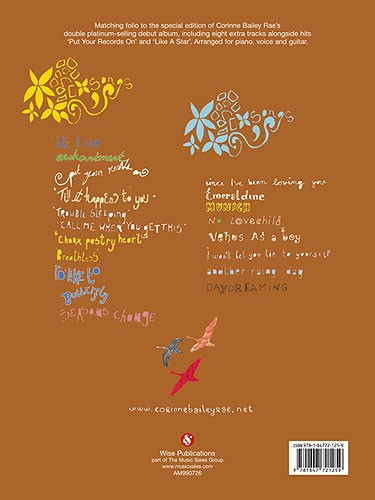 Matching folio to the special edition of Corinne Bailey Rae's
double platinum-selling debut album, including eight extra tracks alongside hits
'Put Your Records On' and 'Like A Star'. Arranged for piano, voice and guitar.
songs
songs
like a star
enchantment
put your records on
'Till it happens to you'
'TROUBLE SLEEPING'
'CALL ME WHEN YOU GET THIS'
'Choux pastry heart'
Breathless
I'd like to
Butterfly
SEASONS CHANGE
since I've been loving you
Emeraldine
MUNICH
No Lovechild
Venus As a boy
I won't let you lie to yourself
another rainy day
DAYDREAMING
www.corinnebaileyrae.net
Wise Publications
part of The Music Sales Group
www.musicsales.com
AM990726
ISBN 978-1-84772-125-9
9 781847 721259